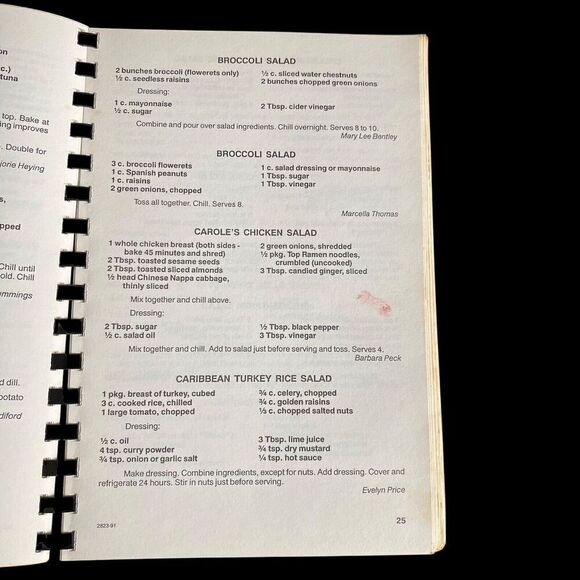 on
c.)
tuna
top. Bake at
ing improves
. Double for
jorie Heying
s,
pped
Chill until
old. Chill
mmings
d dill.
potato
diford
BROCCOLI SALAD
2 bunches broccoli (flowerets only)
½ c. seedless raisins
½ c. sliced water chestnuts
2 bunches chopped green onions
Dressing:
1 c. mayonnaise
½ c. sugar
2 Tbsp. cider vinegar
Combine and pour over salad ingredients. Chill overnight. Serves 8 to 10.
Mary Lee Bentley
BROCCOLI SALAD
3 c. broccoli flowerets
1 c. Spanish peanuts
1 c. raisins
2 green onions, chopped
1 c. salad dressing or mayonnaise
1 Tbsp. sugar
1 Tbsp. vinegar
Toss all together. Chill. Serves 8.
Marcella Thomas
CAROLE'S CHICKEN SALAD
1 whole chicken breast (both sides -
bake 45 minutes and shred)
2 Tbsp. toasted sesame seeds
2 Tbsp. toasted sliced almonds
½ head Chinese Nappa cabbage,
thinly sliced
2 green onions, shredded
½ pkg. Top Ramen noodles,
crumbled (uncooked)
3 Tbsp. candied ginger, sliced
Mix together and chill above.
Dressing:
2 Tbsp. sugar
½ c. salad oil
½ Tbsp. black pepper
3 Tbsp. vinegar
Mix together and chill. Add to salad just before serving and toss. Serves 4.
Barbara Peck
CARIBBEAN TURKEY RICE SALAD
1 pkg. breast of turkey, cubed
3 c. cooked rice, chilled
1 large tomato, chopped
¾ c. celery, chopped
¾ c. golden raisins
⅓ c. chopped salted nuts
Dressing:
½ c. oil
4 tsp. curry powder
¾ tsp. onion or garlic salt
3 Tbsp. lime juice
¾ tsp. dry mustard
¼ tsp. hot sauce
Make dressing. Combine ingredients, except for nuts. Add dressing. Cover and
refrigerate 24 hours. Stir in nuts just before serving.
Evelyn Price
2823-91
25